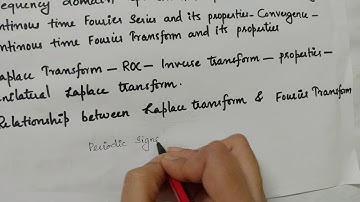 equency domain,
ontinous time Fourier Series and its properties - Convergence -
ontinous time Fourier Transform and its properties
aplace Transform - ROC - Inverse transform - properties -
unilateral Laplace transform.
Relationship between Laplace transform & Fourier Transform
Periodic Signa